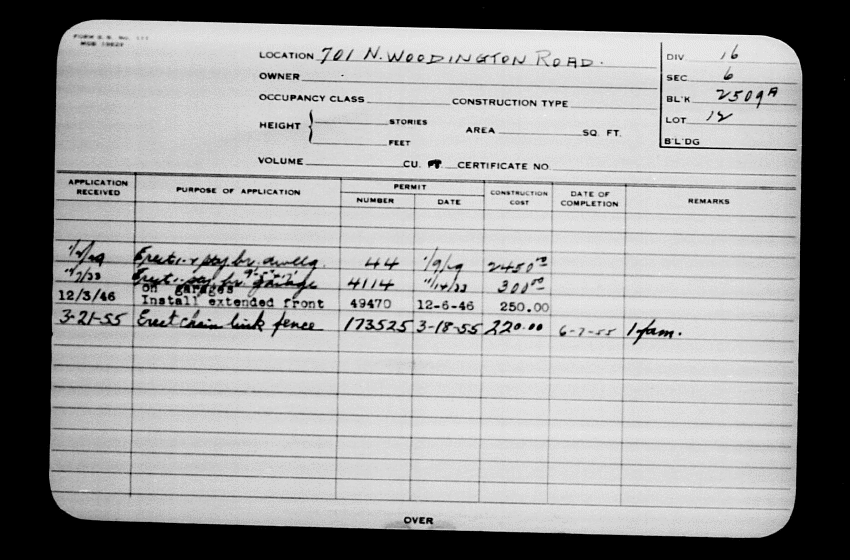 LOCATION 701 N. WOODINGTON ROAD.
DIV 16
OWNER
SEC 6
OCCUPANCY CLASS CONSTRUCTION TYPE
BL'K 2509A
HEIGHT { STORIES FEET AREA SQ. FT.
LOT 12
B'L'DG
VOLUME CU. CERTIFICATE NO
APPLICATION RECEIVED PURPOSE OF APPLICATION PERMIT NUMBER DATE CONSTRUCTION COST DATE OF COMPLETION REMARKS
Erect 1-2 sty br. dwellg. 44 1/9/29 2450.00
Erect 1- sty br. garage 4114 11/14/33 300.00
on garages
12/3/46 Install extended front 49470 12-6-46 250.00
3-21-55 Erect chain link fence 173525 3-18-55 220.00 6-7-55 1 fam.
OVER